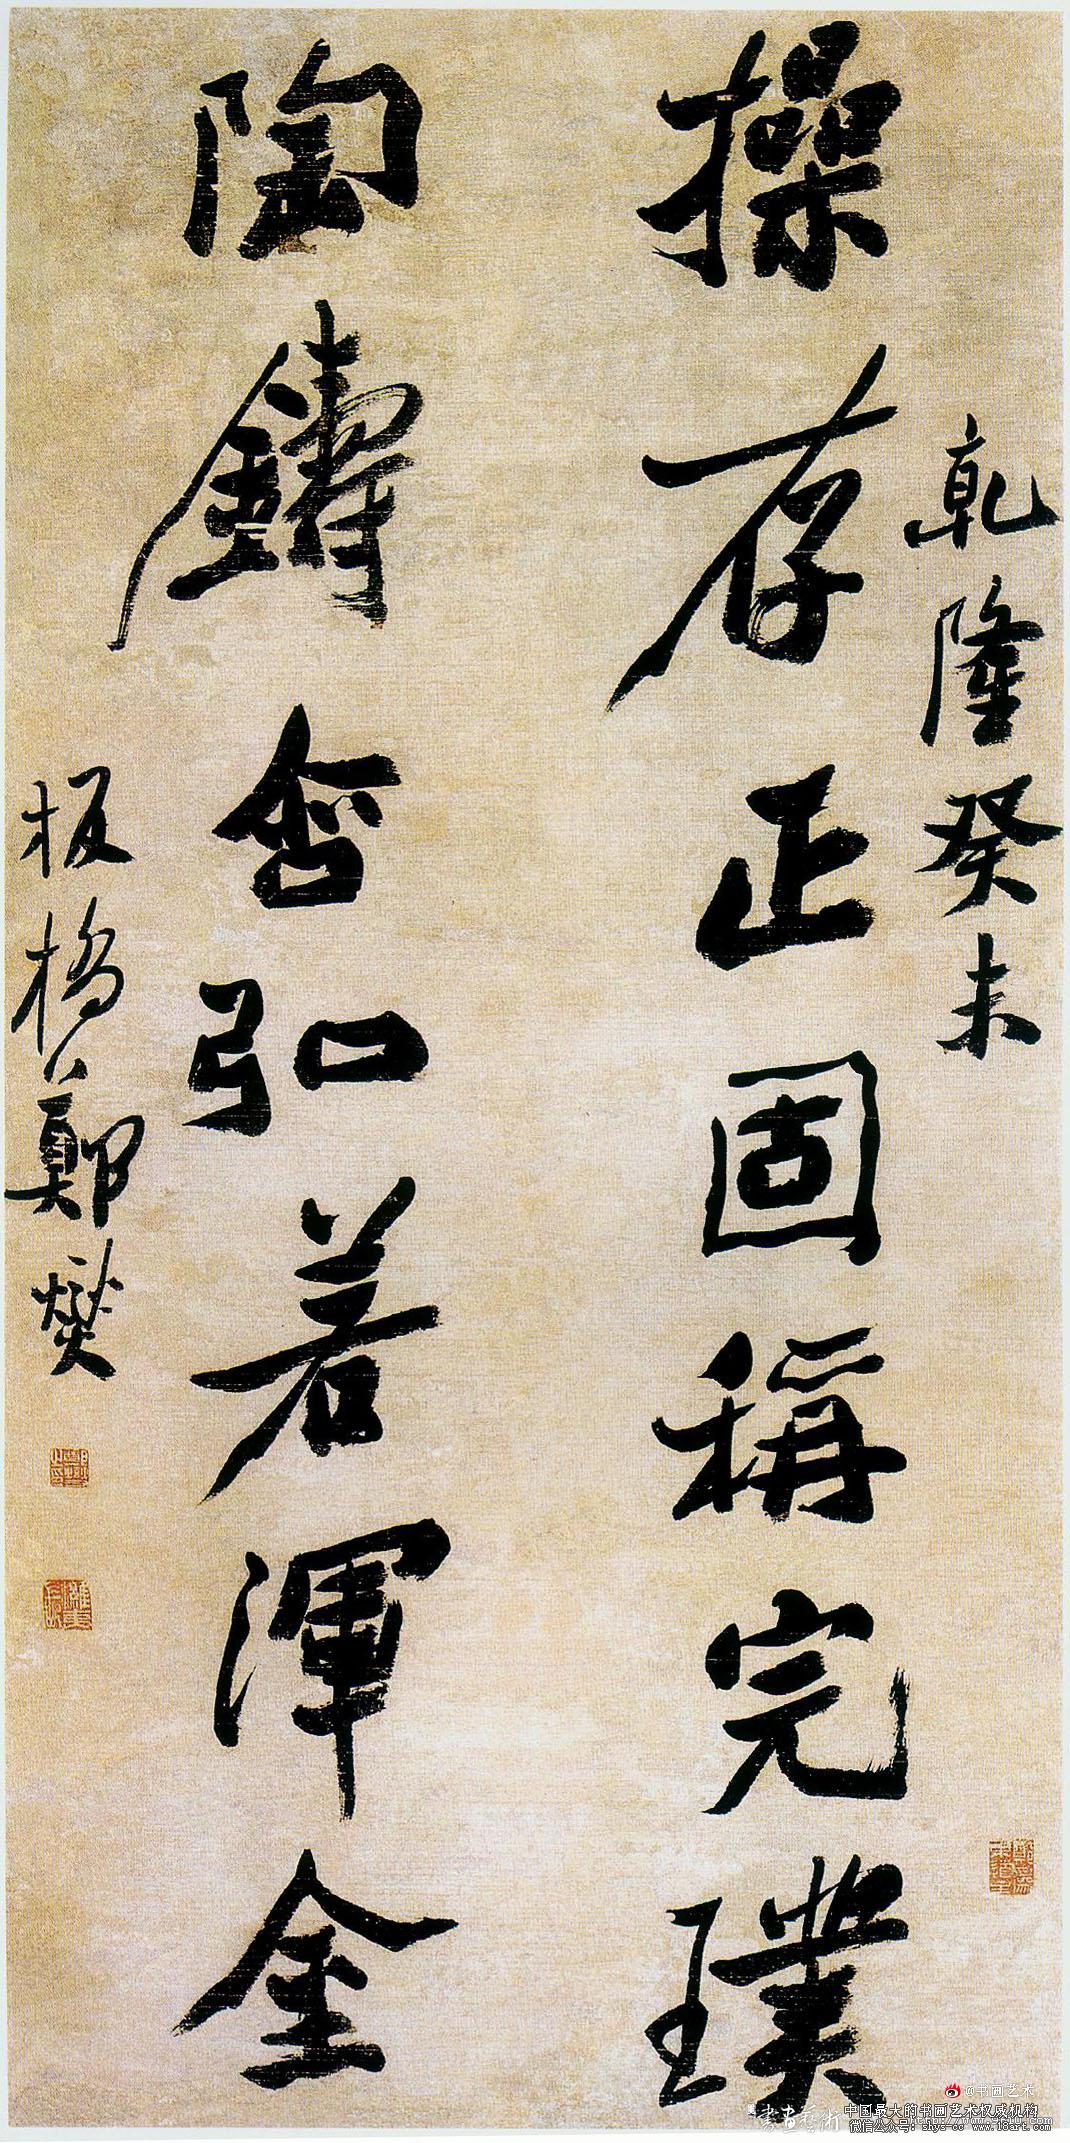 乾隆癸未
操存正固稱完璞
陶鑄含弘若渾金
板橋鄭燮
@书画艺术
中国最大的书画艺术权威机构